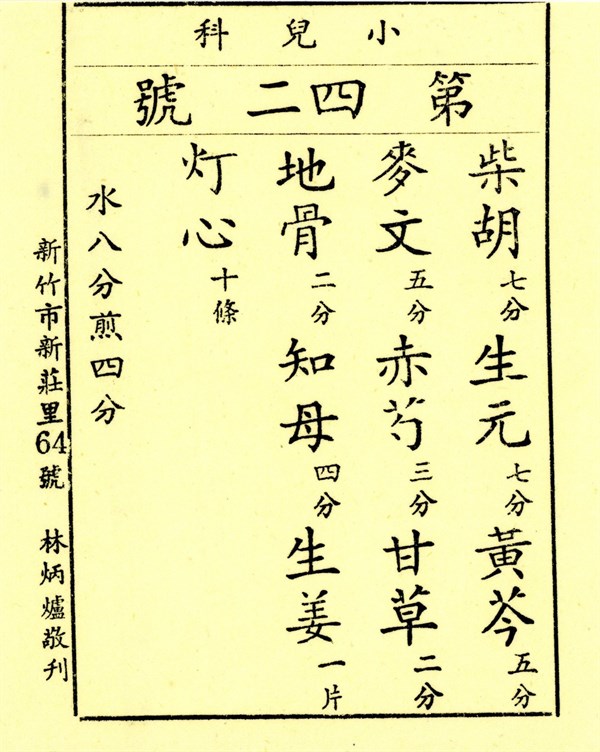 小兒科
第四二號
柴胡七分生元七分黃芩五分
麥文五分赤芍三分甘草二分
地骨二分知母四分生姜一片
灯心十條
水八分煎四分
新竹市新莊里64號 林炳爐敬刊